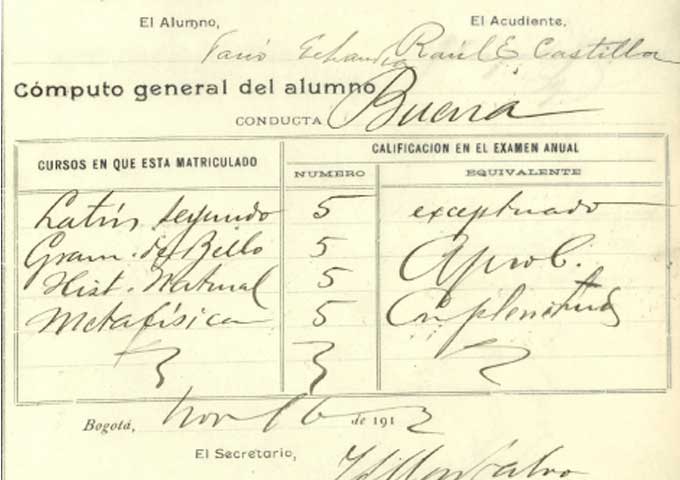 El Alumno, El Acudiente,
Darío Echandía Raúl E Castilla
Cómputo general del alumno
CONDUCTA Buena
CURSOS EN QUE ESTA MATRICULADO CALIFICACION EN EL EXAMEN ANUAL
NUMERO EQUIVALENTE
Latín segundo 5 exceptuado
Gram. de Bello 5 Aprob.
Hist. Natural 5
Metafísica 5 Con plenitud
Bogotá, Nov 16 de 191
El Secretario,